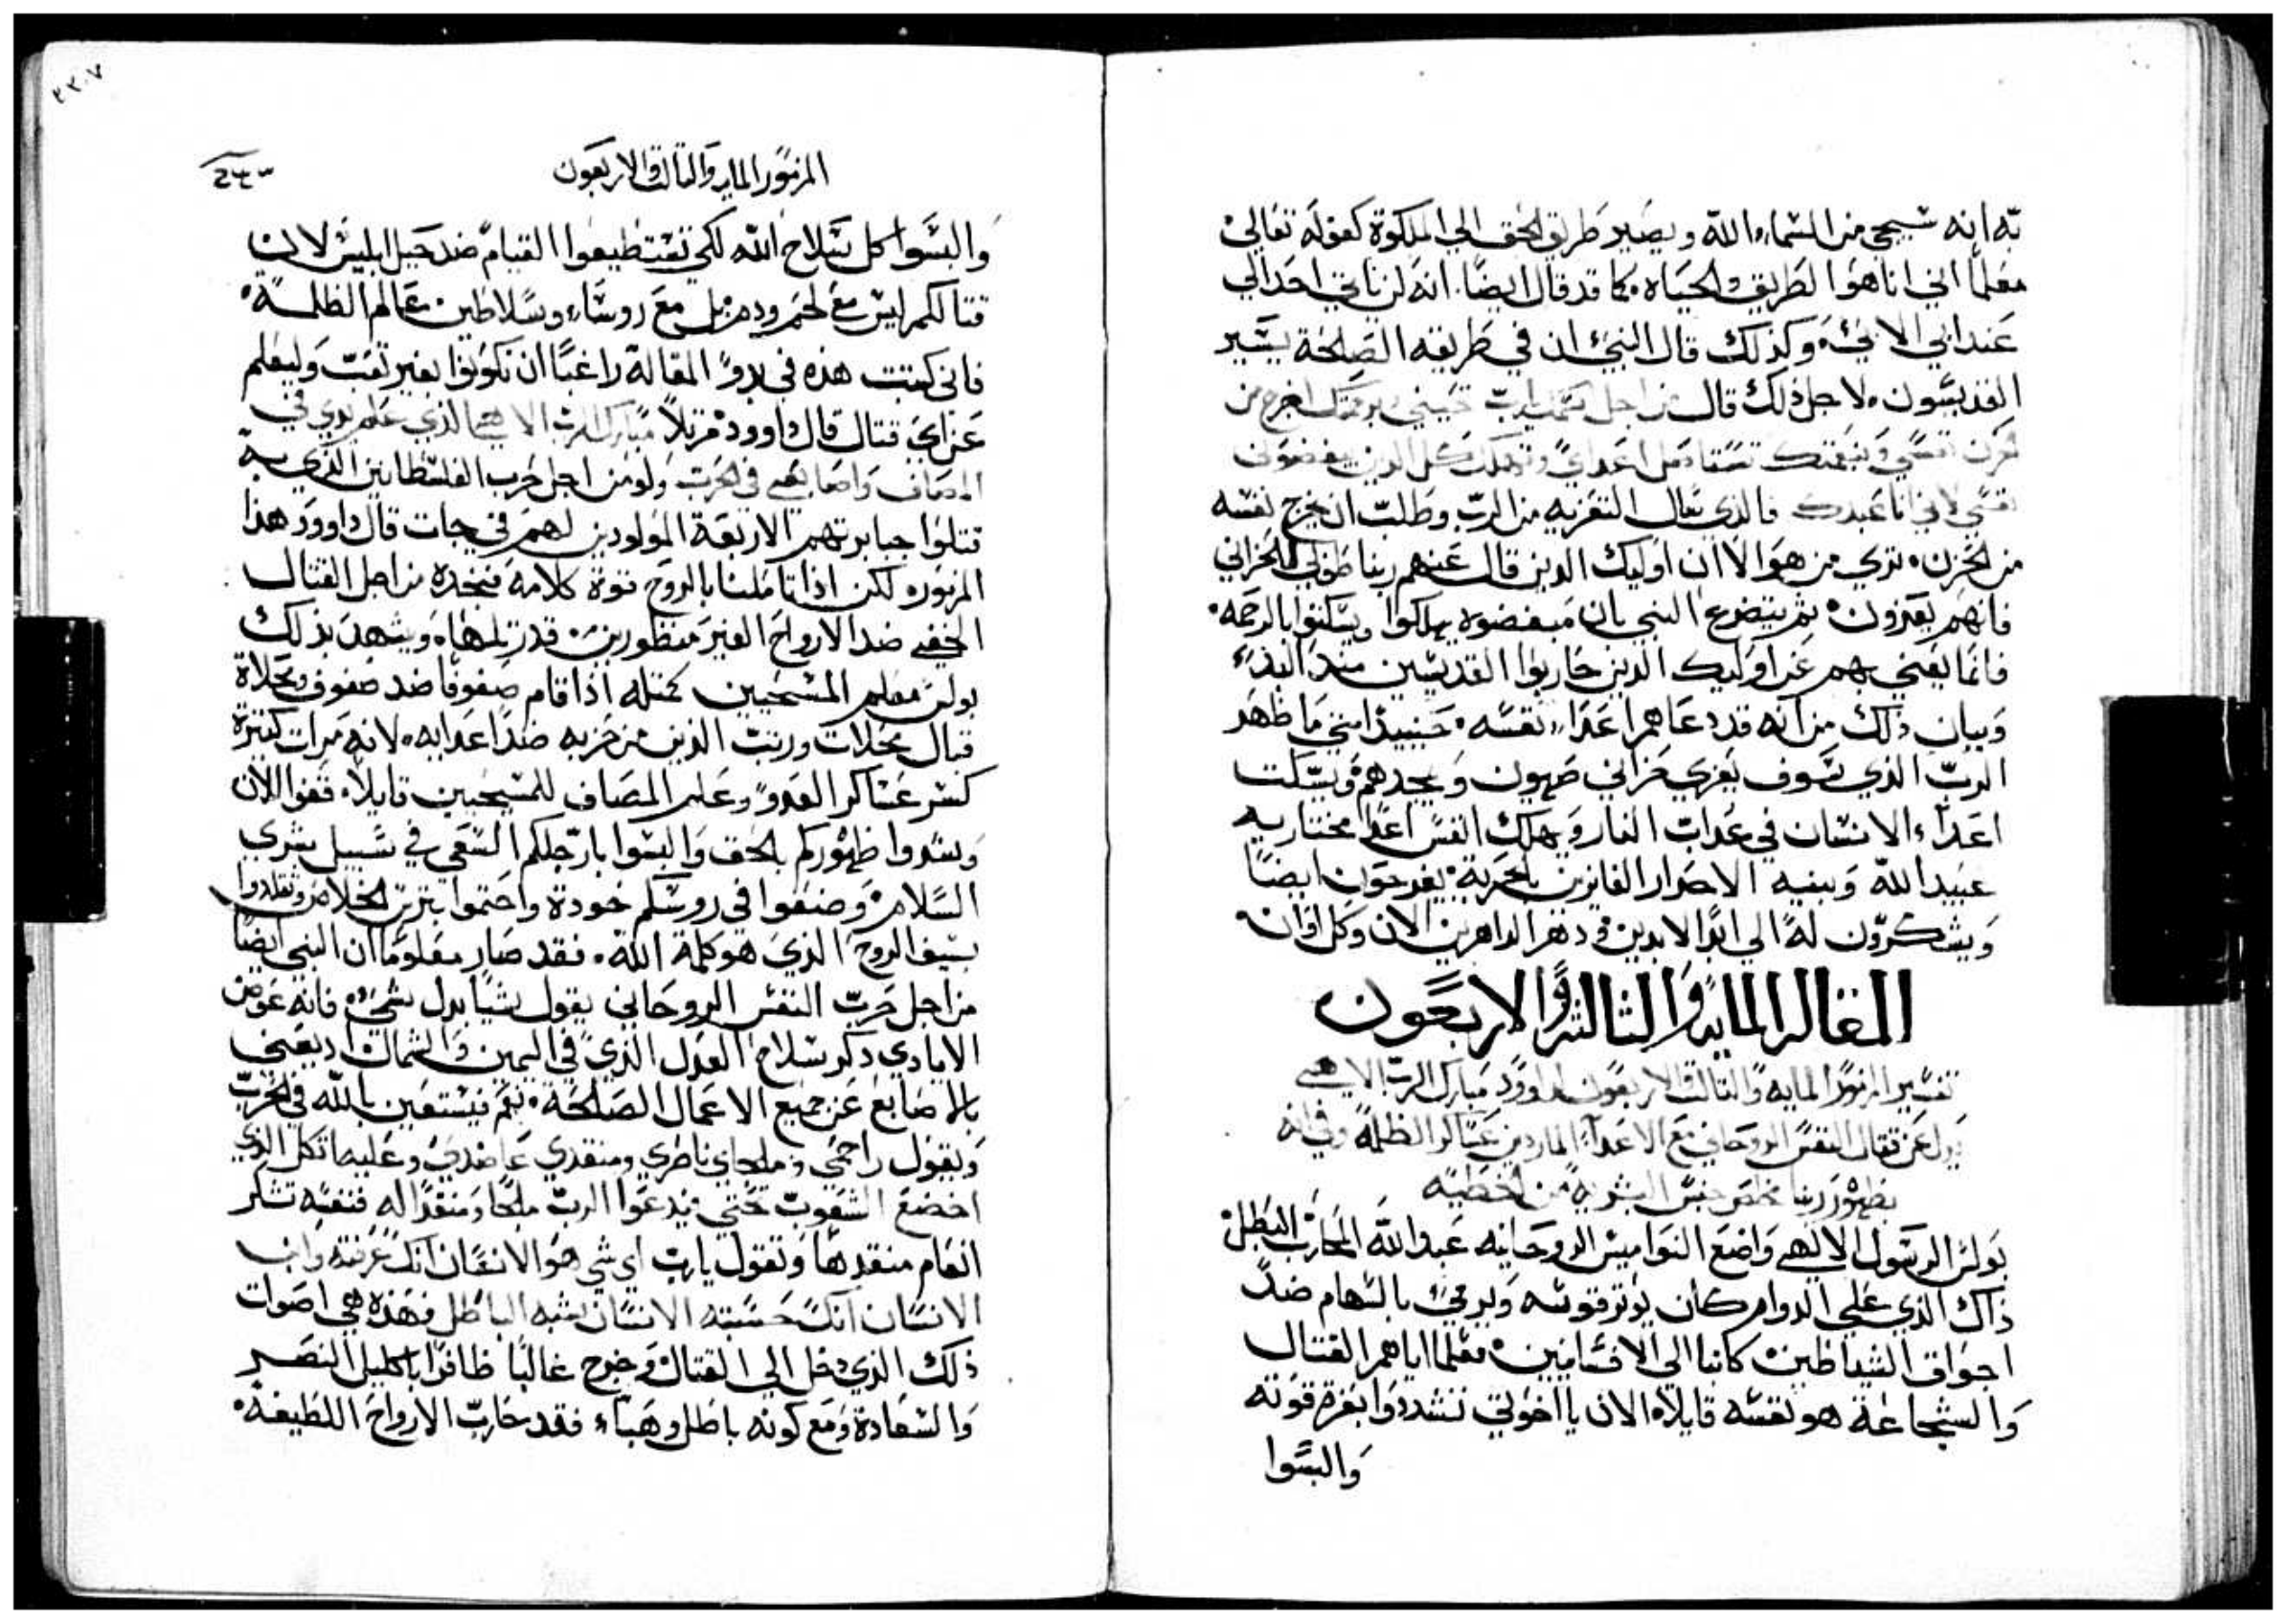 به انه سيجي من السماء الله ويصير طريق الحق الي الملكوة كقوله تعالي
معلما اني انا هوا لطريق والحياه كما قد قال ايضا. انه لن ياتي احد الي
عند ابي الا بي وكذلك قال النبي ان في طريقه الصالحة يسير
القديسون ولاجل ذلك قال من اجل اسمك يارب تحييني وبرحمتك اخرج من
حزن نفسي وبنعمتك تستاصل اعداي وتهلك كل الذين يبغضون
نفسي لاني انا عبدك فالذي ينال التعزيه من الرب وطلب ان يخرج نفسه
من الحزن تري من هوا لا ان اوليك الذين قال عنهم ربنا طوبي للحزاني
فانهم يعزون ثم يتضرع النبي بان مبغضوه يهلكوا ويسكنوا بالرحمه
فانما يعني بهم عن اوليك الذين حاربوا القديسين منذ البدء
وبيان ذلك من انه قد دعاهم اعداء نفسه حينيذ امتي ما ظهر
الرب الذي سوف يعزي حزاني صهون ويجدهم ويسكت
اعداء الانسان في عذاب النار ويهلك انفس اعدا مختاريه
عبيد الله وبنيه الاحرار الفايزين بالحرية يفرحون ايضا
ويشكرون له الي ابد الابدين ودهر الداهرين الان وكل اوان
المقاله المايه والثالثه والاربعون
تفسير المزمور المايه والثالث والاربعون لداوود مبارك الرب الاهي
يدل عن قتال النفس الروحاني مع الاعداء الماردين عساكر الظلمه وفي انه
بظهور ربنا تخلص جنس البشريه من الخطيه
بولس الرسول الالهي واضع النواميس الروحانيه عبد الله المحارب البطل
ذاك الذي علي الدوام كان يوتر قوسه ويرمي بالسهام ضد
اجواق الشياطين كاتبا الي الافسانيين معلما اياهم القتال
والشجاعة هو نفسه قايلا الان يا اخوتي تشددوا بعزة قوته
والبسوا
المزمور المايه والثالث والاربعون
والبسوا كل سلاح الله لكي تستطيعوا القيام ضد حيل ابليس لان
قتالكم ليس مع لحم ودم بل مع روساء وسلاطين عالم الظلمة
فاني كتبت هذه في بدو المقالة راغبا ان تكونوا بغير تعب وليعلم
عن اي قتال قال داوود مرتلا مبارك الرب الاهي الذي علم يدي في
المصاف واصابعي في الحرب ولو من اجل حرب الفلسطانيين الذي به
قتلوا جبابرتهم الاربعة المولودين لهم في جات قال داوود هذا
المزمور لكن اذا تاملنا بالروح قوة كلامه فنجده من اجل القتال
الخفي ضد الارواح الغير منظورين قد رتلها ويشهد بذلك
بولس معلم المسيحيين كمثله اذا قام صفوفا ضد صفوف ومحلاة
قبال محلات ورتب الذين من حزبه ضد اعدايه لانه مرات كثيرة
كسر عساكر العدو وعلم المصاف للمسيحيين قايلا قفوا الان
وشدوا ظهوركم بالحق والبسوا بارجلكم السعي في سبيل بشري
السلام وضعوا في روسكم خودة واحتموا بترس الخلاص وتقلدوا
بسيف الروح الذي هو كلمة الله فقد صار معلوما ان النبي ايضا
من اجل حرب النفس الروحاني يقول شيا بدل شي فانه عوض
الايادي ذكر سلاح العدل الذي في اليمين والشمال ويعني
بالاصابع عن جميع الاعمال الصالحة نعم فيستعين بالله في الحرب
ويقول راحمي وملجاي ناصري ومنقدي عاضدي وعليه اتكل الذي
اخضع الشعوب حتي يدعوا الرب ملجا ومنقدا له فنفسه تشكر
انعام منقدها وتقول يارب اي شي هو الانسان انك عرفته وابن
الانسان انك حسبته الانسان يشبه الباطل فهذه هي اصوات
ذلك الذي دخل الي القتال وخرج غالبا ظافرا باكليل النصر
والسعادة ومع كونه باطل وهباء فقد حارب الارواح اللطيفة